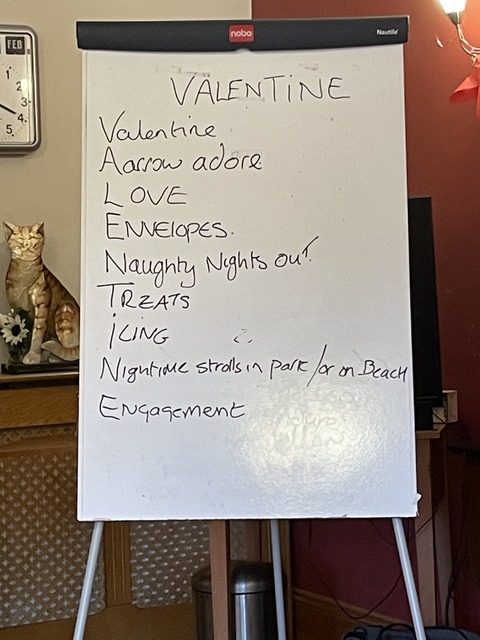 nobo
Nautile
FEB
1
2
3
4
5
VALENTINE
Valentine
Aarrow adore
LOVE
ENVELOPES.
Naughty Nights OUT.
TREATS
ICING
Nightime strolls in park / or on Beach
Engagement